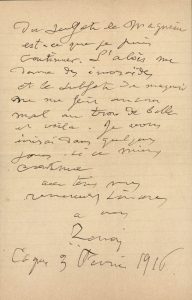 Du sulfate de Magnésie
est-ce que je puis
continuer. L'aloès me
donne des émoroïdes
et le sulfate de magnésie
ne me fait aucun
mal au trou de balle
et voilà. Je vous
écrirai dans quelques
jours si ce mieux
continue
avec tous mes
remerciements
a vous
Renoir
Cagnes 3 Février 1916